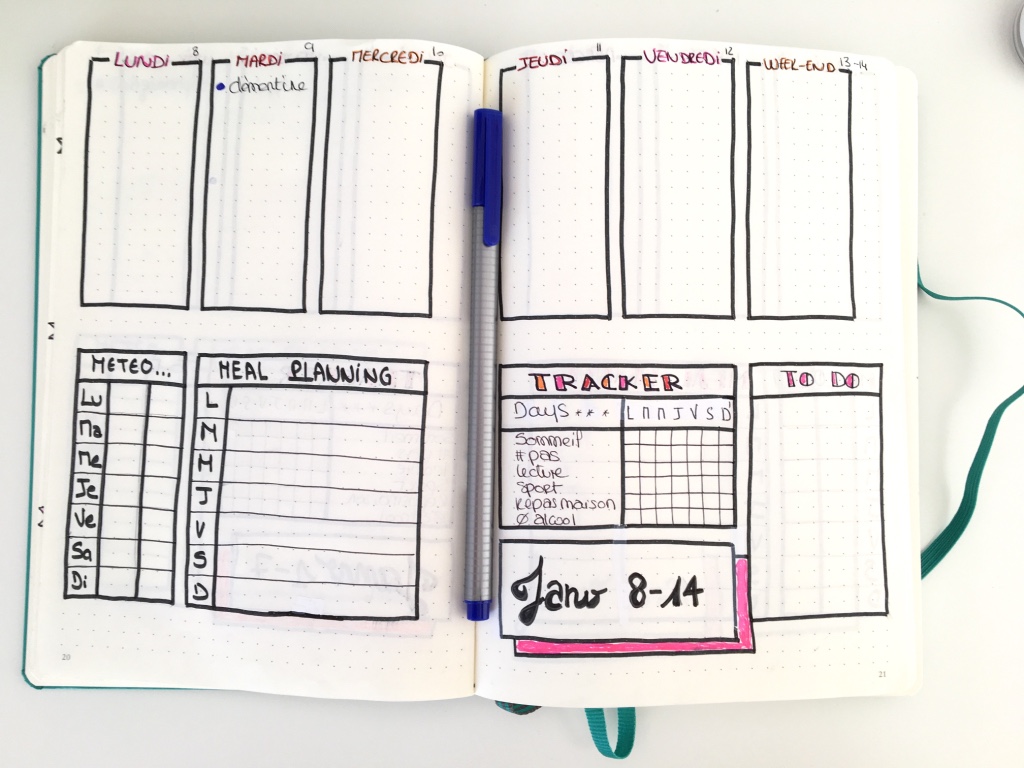 LUNDI 8
MARDI 9
• clémentine
MERCREDI 10
JEUDI 11
VENDREDI 12
WEEK-END 13-14
METEO...
Lu
Ma
Me
Je
Ve
Sa
Di
MEAL PLANNING
L
M
M
J
V
S
D
TRACKER
Days *** L M M J V S D
Sommeil
# pas
lecture
Sport
repas maison
Ø alcool
TO DO
Janv 8-14
20
21